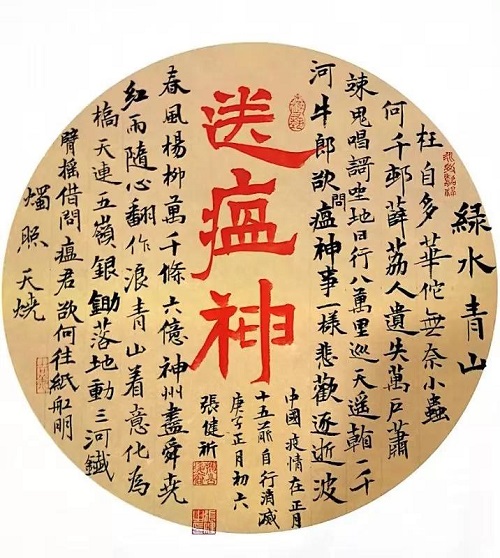 綠水青山
枉自多華佗無奈小蟲
何千邨薜荔人遺失萬戶蕭
踈鬼唱謌坐地日行八萬里巡天遥一千
河牛郎欲問瘟神事一樣悲歡逐逝波
送瘟神
中國疫情在正月
十五前自行消滅
庚子正月初六
張健祈
春風楊柳萬千條六億神州盡舜堯
紅雨隨心翻作浪青山着意化為
橋天連五嶺銀鋤落地動三河鐵
臂摇借問瘟君欲何往紙船明
燭照天燒